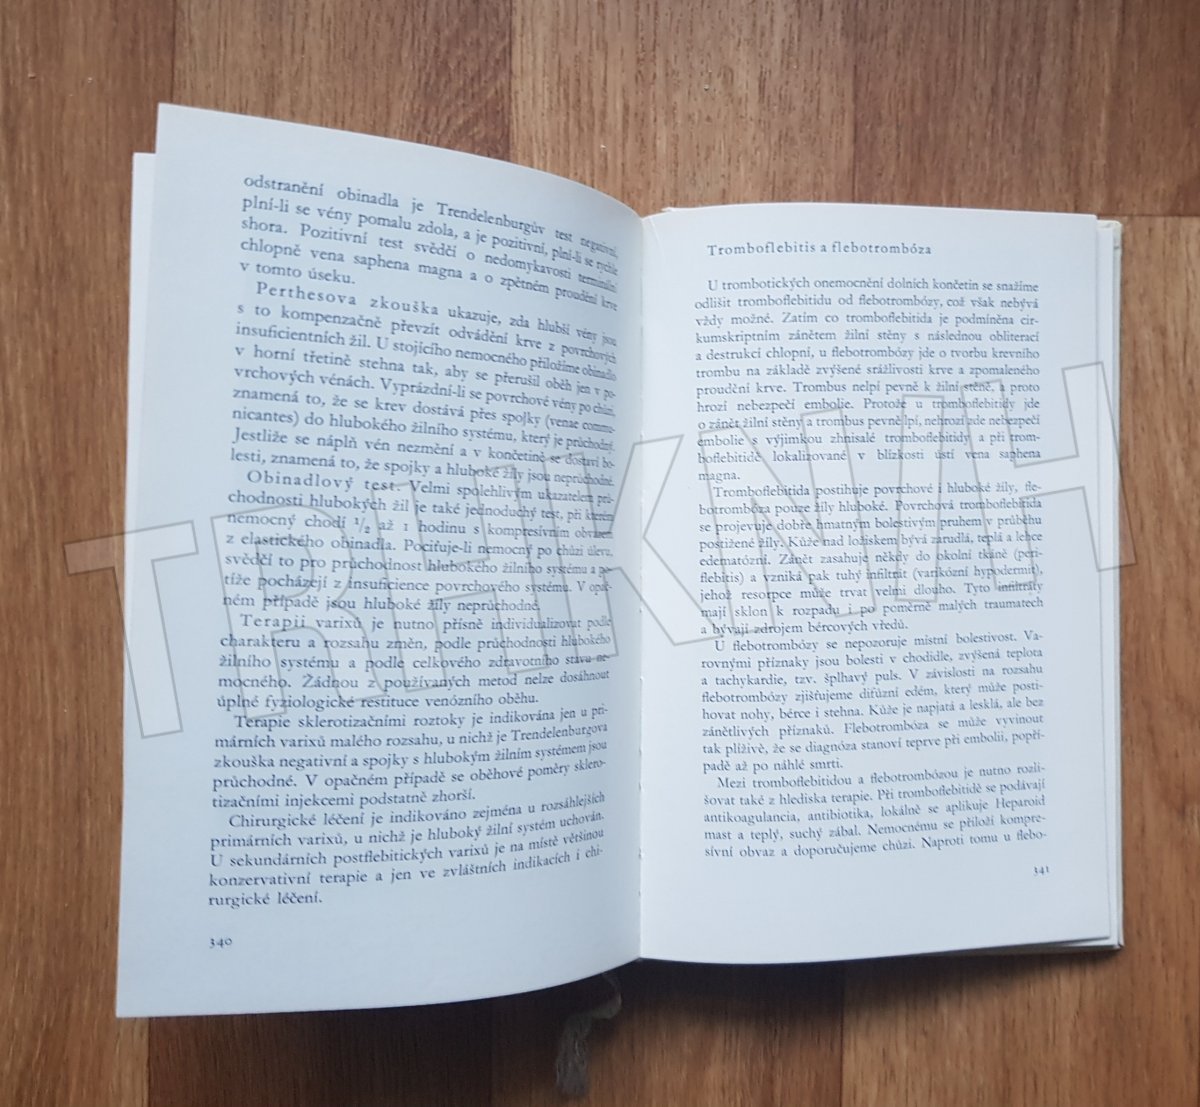 odstranění obinadla je Trendelenburgův test negativní,
plní-li se vény pomalu zdola, a je pozitivní, plní-li se rychle
shora. Pozitivní test svědčí o nedomykavosti terminální
chlopně vena saphena magna a o zpětném proudění krve
v tomto úseku.
Perthesova zkouška ukazuje, zda hlubší vény jsou
s to kompenzačně převzít odvádění krve z povrchových
insuficientních žil. U stojícího nemocného přiložíme obinadlo
v horní třetině stehna tak, aby se přerušil oběh jen v po-
vrchových vénách. Vyprázdní-li se povrchové vény po chůzi,
znamená to, že se krev dostává přes spojky (venae commu-
nicantes) do hlubokého žilního systému, který je průchodný.
Jestliže se náplň vén nezmění a v končetině se dostaví bo-
lesti, znamená to, že spojky a hluboké žíly jsou neprůchodné.
Obinadlový test. Velmi spolehlivým ukazatelem prů-
chodnosti hlubokých žil je také jednoduchý test, při kterém
nemocný chodí 1/2 až 1 hodinu s kompresivním obvazem
z elastického obinadla. Pociťuje-li nemocný po chůzi úlevu,
svědčí to pro průchodnost hlubokého žilního systému a po-
tíže pocházejí z insuficience povrchového systému. V opač-
ném případě jsou hluboké žíly neprůchodné.
Terapii varixů je nutno přísně individualizovat podle
charakteru a rozsahu změn, podle průchodnosti hlubokého
žilního systému a podle celkového zdravotního stavu ne-
mocného. Žádnou z používaných metod nelze dosáhnout
úplné fyziologické restituce venózního oběhu.
Terapie sklerotizačními roztoky je indikována jen u pri-
márních varixů malého rozsahu, u nichž je Trendelenburgova
zkouška negativní a spojky s hlubokým žilním systémem jsou
průchodné. V opačném případě se oběhové poměry sklero-
tizačními injekcemi podstatně zhorší.
Chirurgické léčení je indikováno zejména u rozsáhlejších
primárních varixů, u nichž je hluboký žilní systém uchován.
U sekundárních postflebitických varixů je na místě většinou
konzervativní terapie a jen ve zvláštních indikacích i chi-
rurgické léčení.
340
Tromboflebitis a flebotrombóza
U trombotických onemocnění dolních končetin se snažíme
odlišit tromboflebitidu od flebotrombózy, což však nebývá
vždy možné. Zatím co tromboflebitida je podmíněna cir-
kumskriptním zánětem žilní stěny s následnou obliterací
a destrukcí chlopní, u flebotrombózy jde o tvorbu krevního
trombu na základě zvýšené srážlivosti krve a zpomaleného
proudění krve. Trombus nelpí pevně k žilní stěně, a proto
hrozí nebezpečí embolie. Protože u tromboflebitidy jde
o zánět žilní stěny a trombus pevně lpí, nehrozí zde nebezpečí
embolie s výjimkou zhnisalé tromboflebitidy a při trom-
boflebitidě lokalizované v blízkosti ústí vena saphena
magna.
Tromboflebitida postihuje povrchové i hluboké žíly, fle-
botrombóza pouze žíly hluboké. Povrchová tromboflebitida
se projevuje dobře hmatným bolestivým pruhem v průběhu
postižené žíly. Kůže nad ložiskem bývá zarudlá, teplá a lehce
edematózní. Zánět zasahuje někdy do okolní tkáně (peri-
flebitis) a vzniká pak tuhý infiltrát (varikózní hypodermit),
jehož resorpce může trvat velmi dlouho. Tyto infiltráty
mají sklon k rozpadu i po poměrně malých traumatech
a bývají zdrojem bércových vředů.
U flebotrombózy se nepozoruje místní bolestivost. Va-
rovnými příznaky jsou bolesti v chodidle, zvýšená teplota
a tachykardie, tzv. šplhavý puls. V závislosti na rozsahu
flebotrombózy zjišťujeme difúzní edém, který může posti-
hovat nohy, bérce i stehna. Kůže je napjatá a lesklá, ale bez
zánětlivých příznaků. Flebotrombóza se může vyvinout
tak plíživě, že se diagnóza stanoví teprve při embolii, popří-
padě až po náhlé smrti.
Mezi tromboflebitidou a flebotrombózou je nutno rozli-
šovat také z hlediska terapie. Při tromboflebitidě se podávají
antikoagulancia, antibiotika, lokálně se aplikuje Heparoid
mast a teplý, suchý zábal. Nemocnému se přiloží kompre-
sívní obvaz a doporučujeme chůzi. Naproti tomu u flebo-
341
TREKNIH